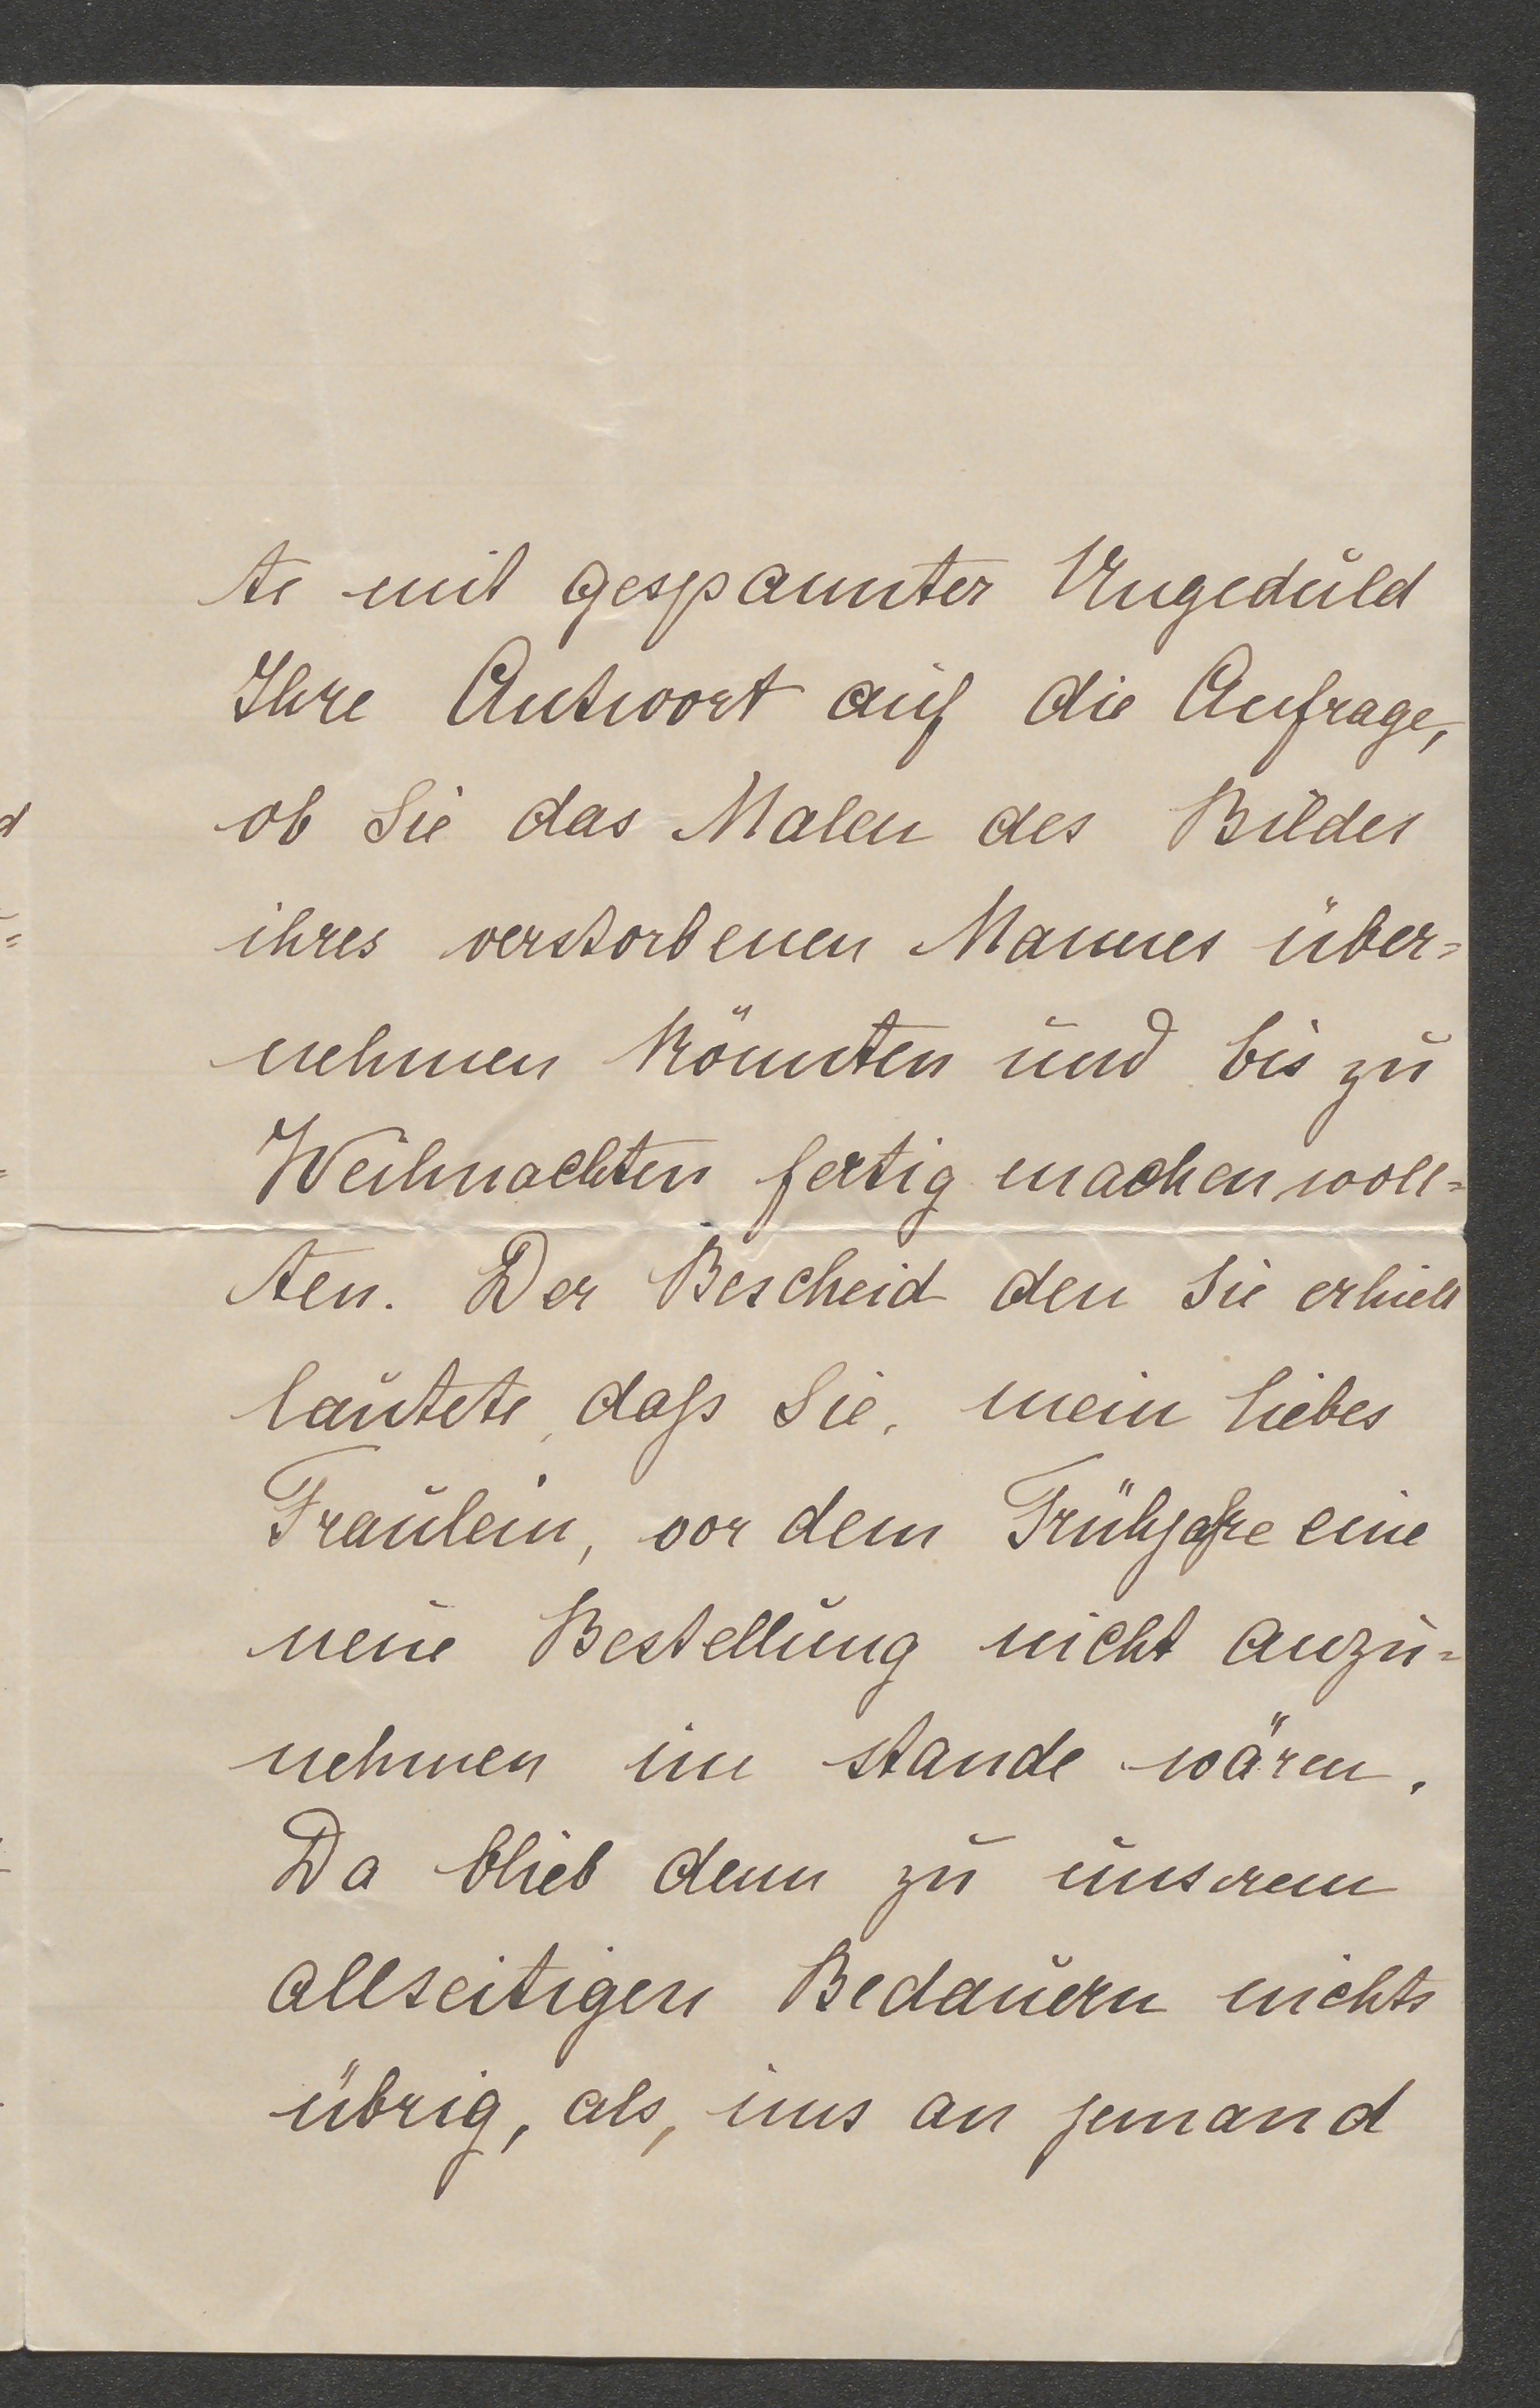 te mit gespannter Ungeduld
Ihre Antwort auf die Anfrage,
ob Sie das Malen des Bildes
ihres verstorbenen Mannes über=
nehmen könnten und bis zu
Weihnachten fertig machen woll=
ten. Der Bescheid den Sie erhielt
lautete, daſs Sie, mein liebes
Fraulein, vor dem Frühjahre eine
neue Bestellung nicht anzu=
nehmen im stande wären.
Da blieb denn zu unserem
allseitigen Bedauern nichts
übrig, als, uns an jemand